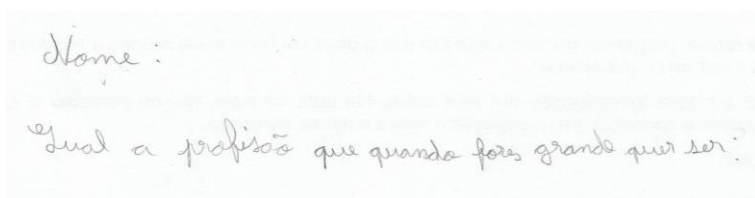 Nome:
Qual a profisão que quando fores grande quer ser: